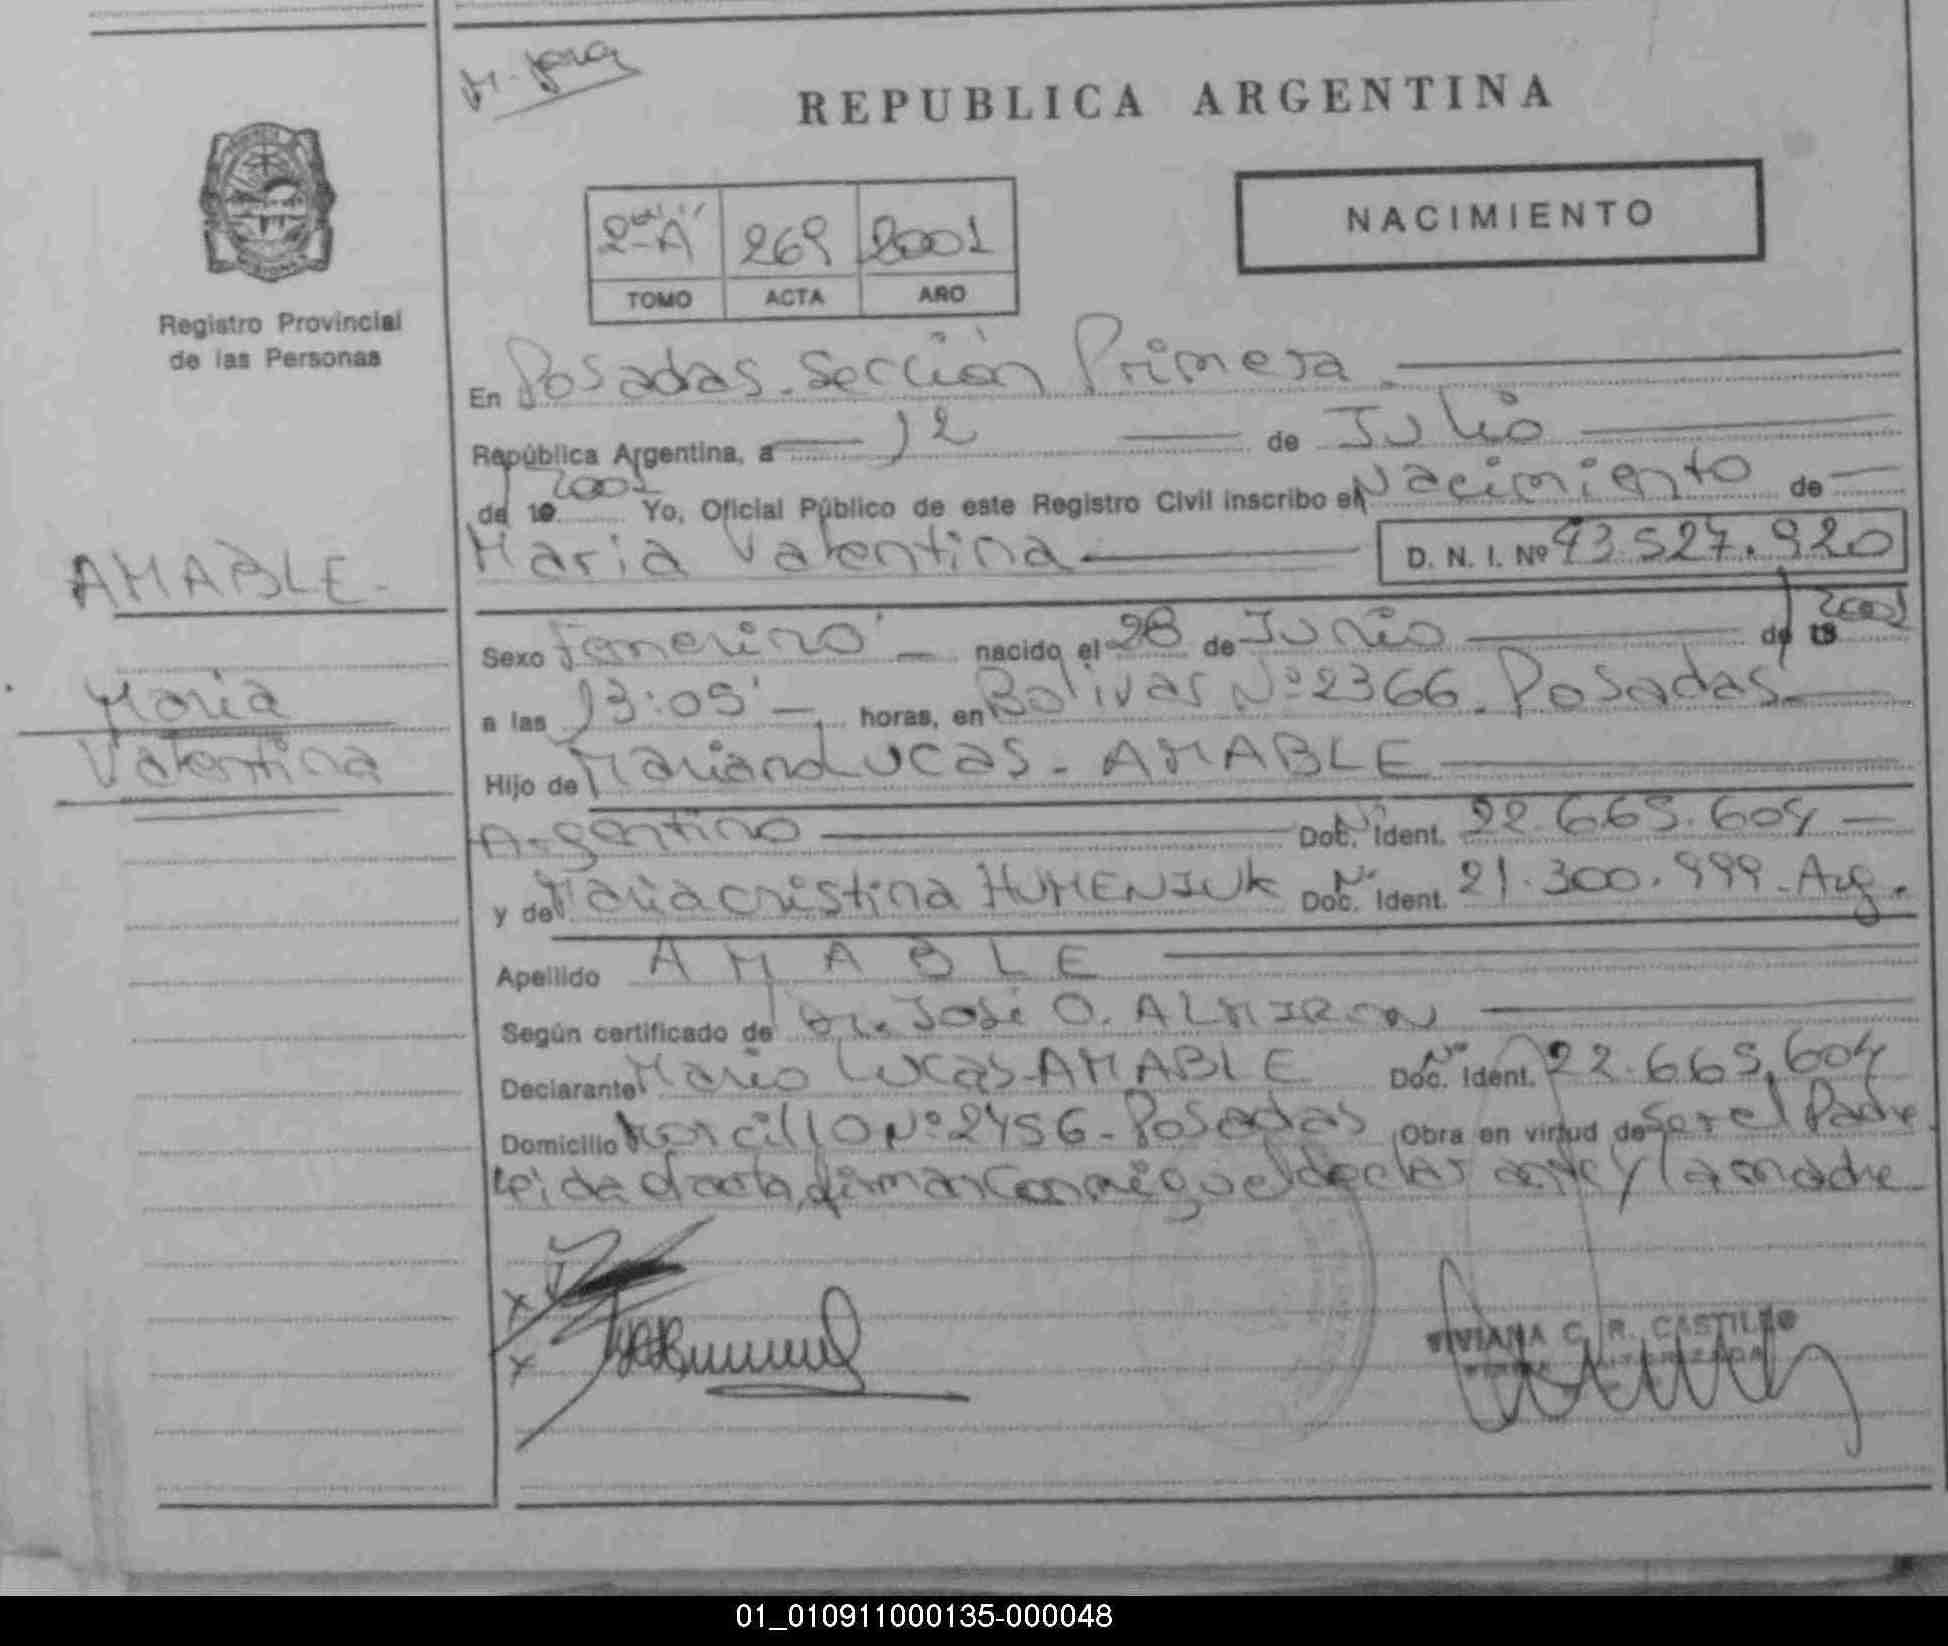 REPUBLICA ARGENTINA
NACIMIENTO
2do "A" 269 2001
TOMO ACTA AÑO
Registro Provincial
de las Personas
En Posadas - Sección Primera
República Argentina, a 12 de Julio
de 19 2001 Yo, Oficial Público de este Registro Civil inscribo el Nacimiento de
Maria Valentina D. N. I. Nº 43.527.920
AMABLE
Maria
Valentina
Sexo femenino nacido el 28 de Junio de 19 2001
a las 13:05 horas, en Bolivar Nº 2366 - Posadas
Hijo de Lucas - AMABLE
Argentino Nº Doc. Ident. 22.665.604
y de Maria cristina HUMENIUK Nº Doc. Ident. 21.300.999 - Arg.
Apellido AMABLE
Según certificado de Dr. José O. ALMIRON
Declarante Mario Lucas AMABLE Nº Doc. Ident. 22.665.604
Domicilio Nº 2456 - Posadas Obra en virtud de ser el Padre
Leida el acta, firman conmigo el declarante y la madre
VIVIANA C. R. CASTILLO
FIRMA AUTORIZADA
01_010911000135-000048